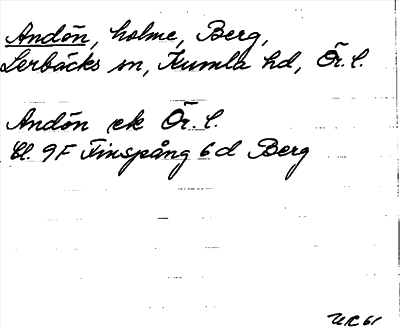 Andön, holme, Berg,
Lerbäcks sn, Kumla hd, Ör. l.
Andön ek Ör. l.
Bl. 9F Finspång 6d Berg